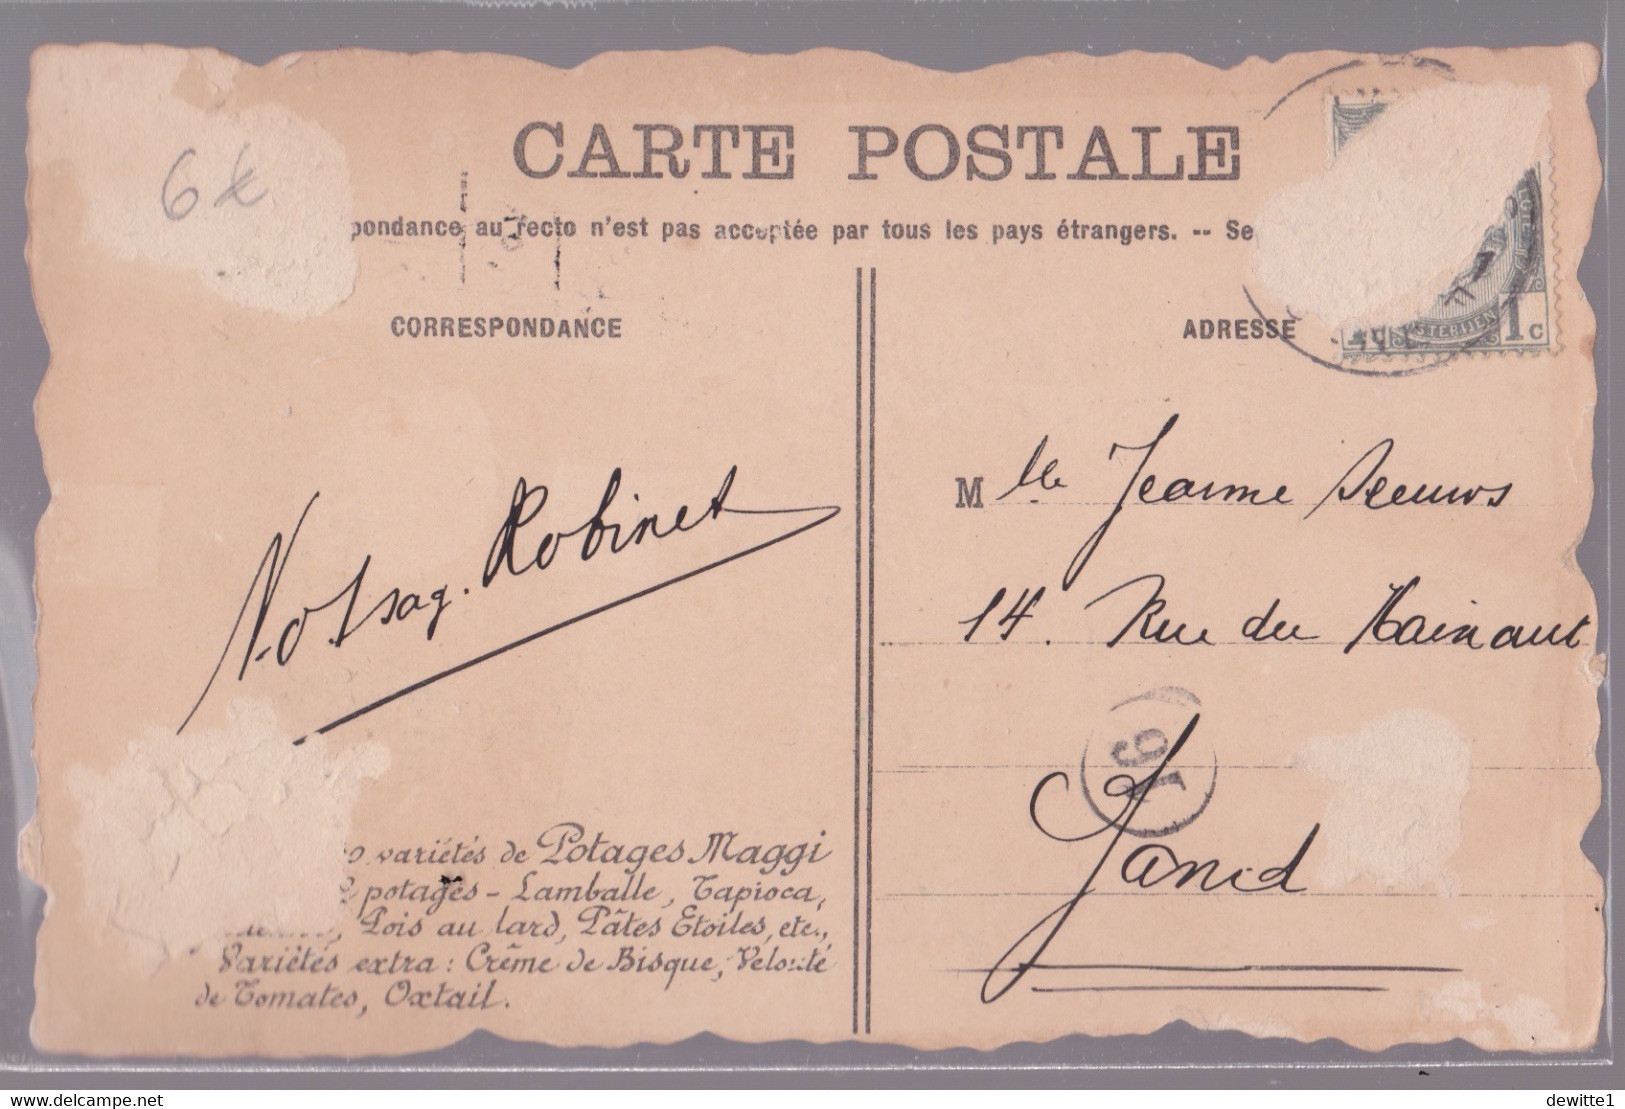 CARTE POSTALE
6€
pondance au recto n'est pas acceptée par tous les pays étrangers. -- Se
CORRESPONDANCE
ADRESSE
OSTERIJEN 1c
Mlle Jeanne Seeuws
Robinet
14. Rue du Hainaut
19
Gand
variétés de Potages Maggi
potages - Lamballe, Tapioca,
Pois au lard, Pâtes Etoiles, etc.,
Variétés extra : Crême de Bisque, Velouté
de Tomates, Oxtail.
www.delcampe.net
dewitte1